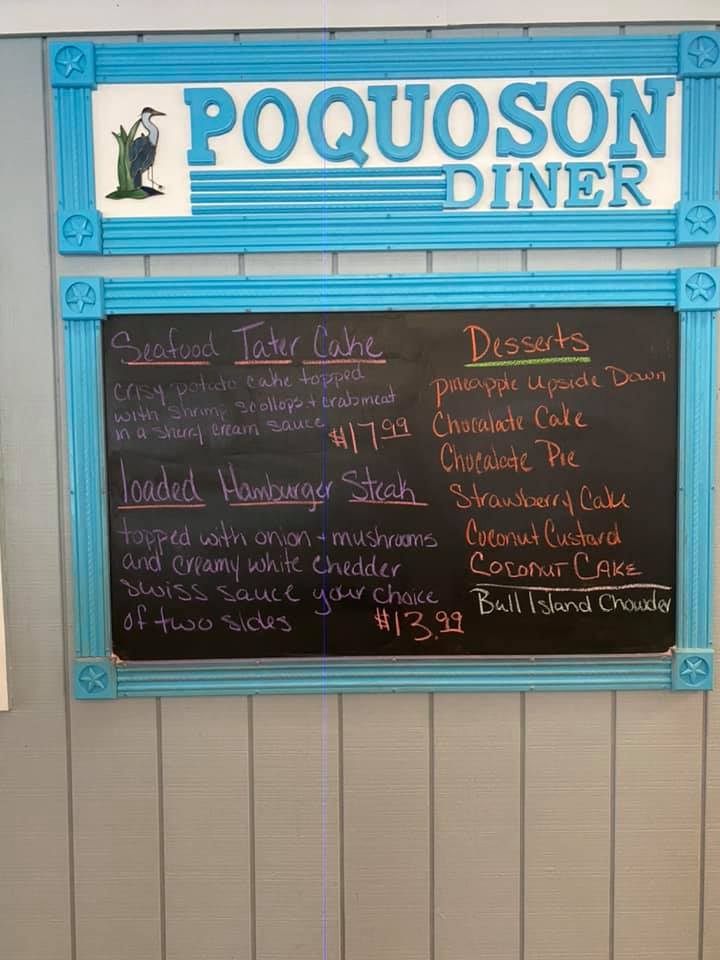 POQUOSON
DINER
Seafood Tater Cake
crisy potato cake topped
with shrimp scollops + crabmeat
in a sherry cream sauce
$17.99
loaded Hamburger Steak
topped with onion + mushrooms
and creamy white chedder
swiss sauce your choice
of two sides
$13.99
Desserts
pineapple upside Down
Chocalate Cake
Chocalate Pie
Strawberry Cake
Coconut Custard
COCONUT CAKE
Bull Island Chowder